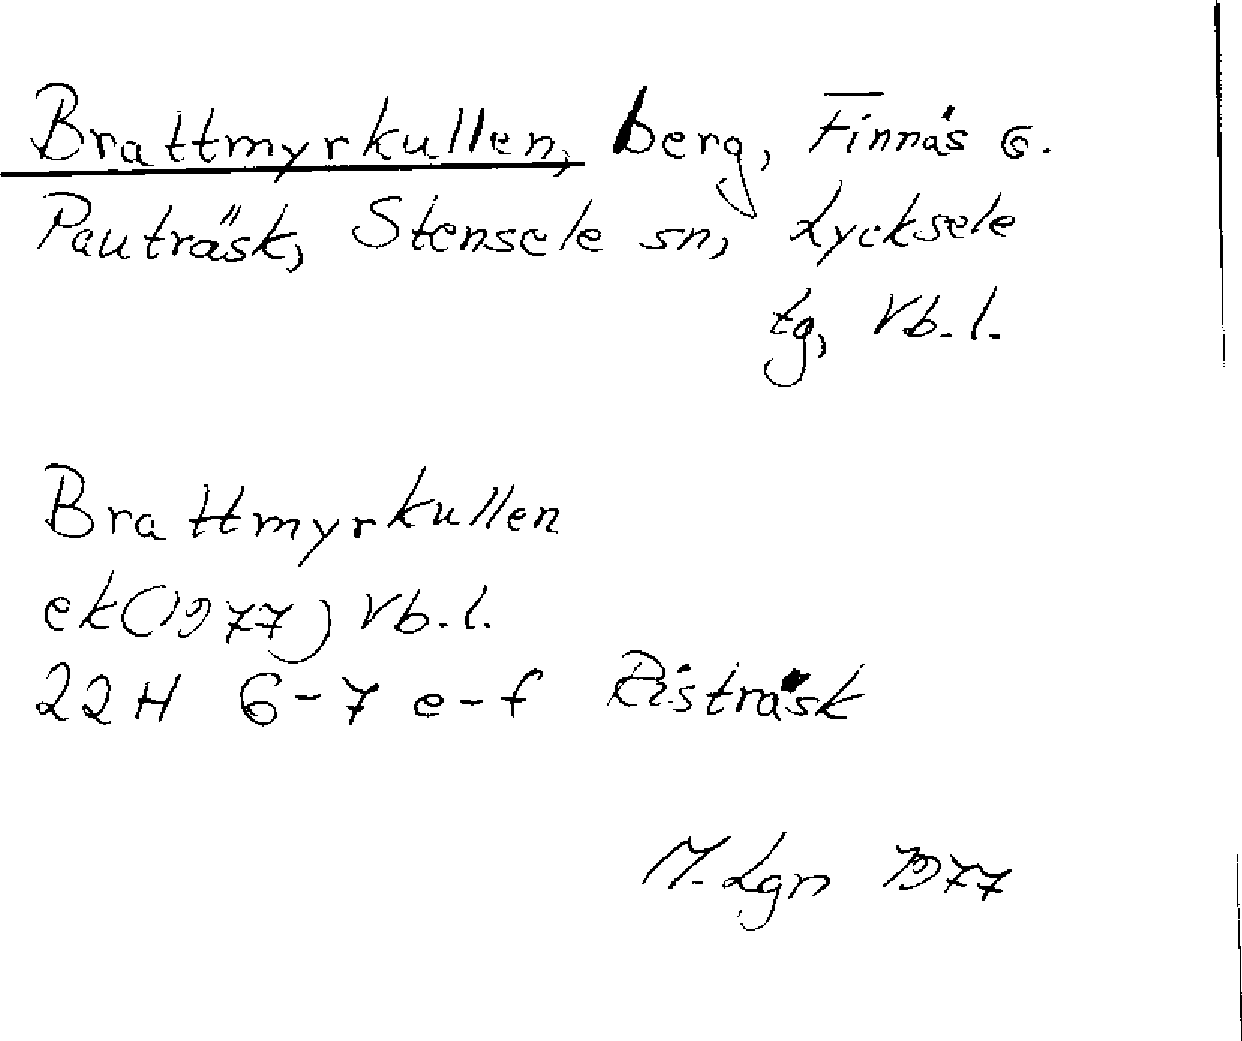 Brattmyrkullen, berg, Finnäs G.
Pauträsk, Stensele sn, Lycksele
tg, Vb. l.
Brattmyrkullen
ek(1977) Vb. l.
22H 6-7 e-f Risträsk
M. Lgn 1977